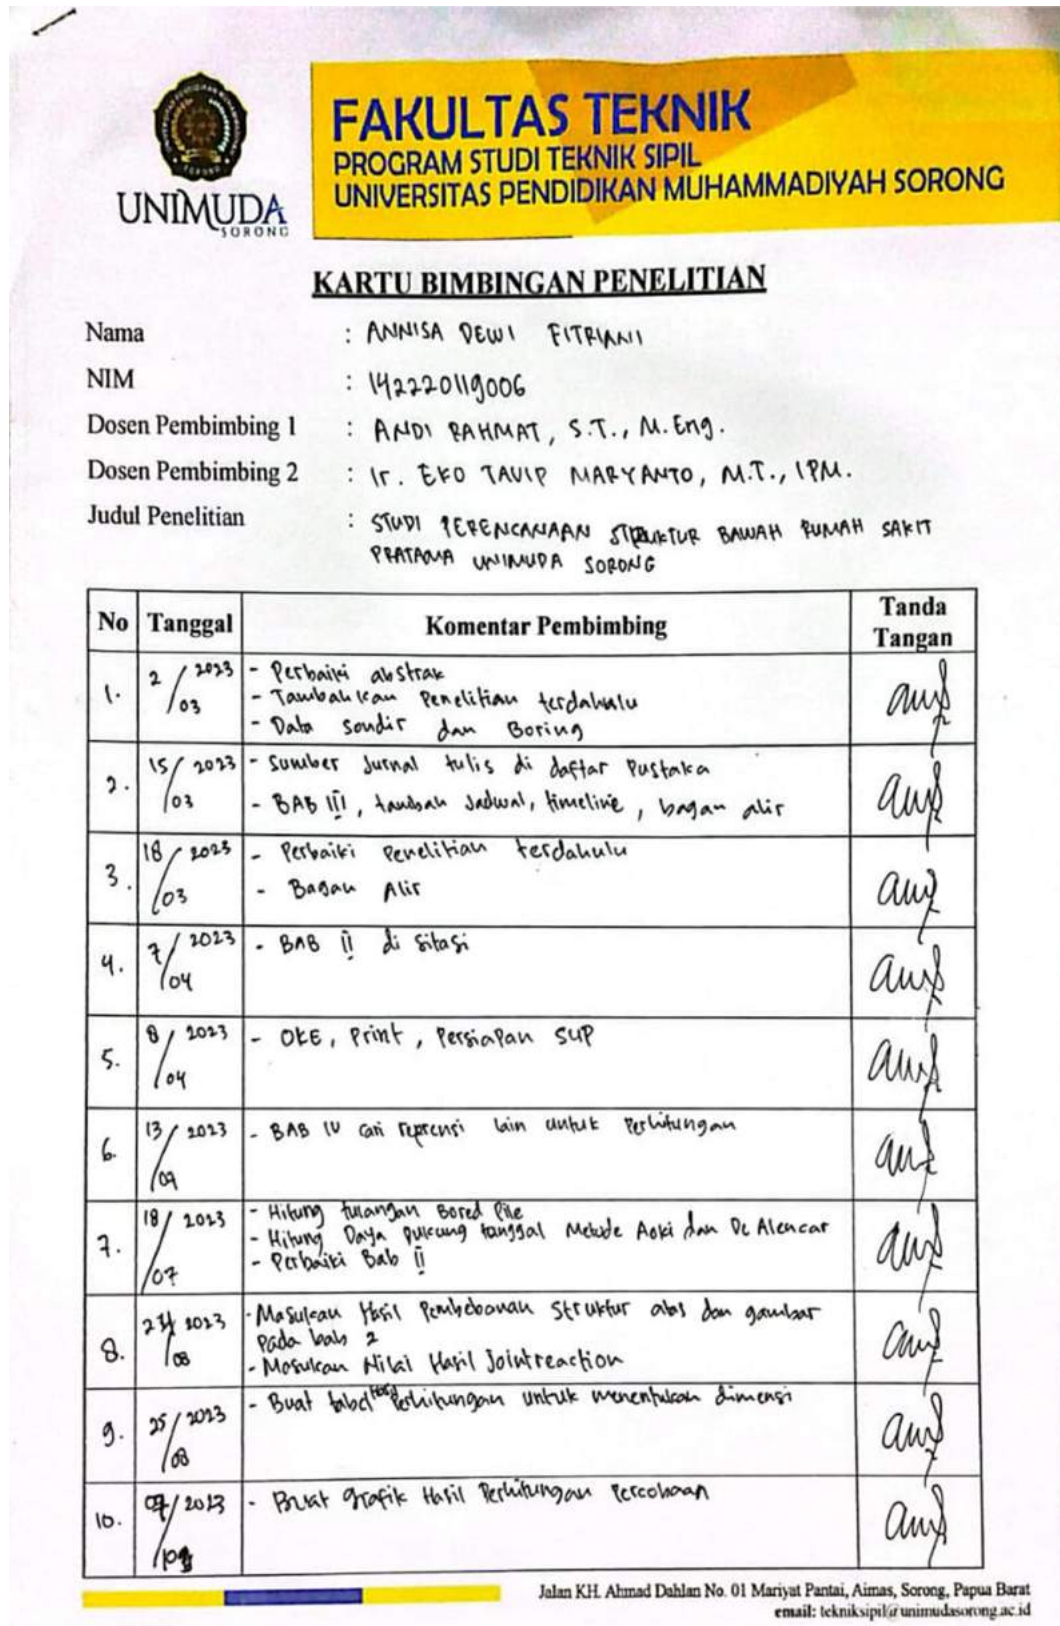 UNIMUDA
SORONG
FAKULTAS TEKNIK
PROGRAM STUDI TEKNIK SIPIL
UNIVERSITAS PENDIDIKAN MUHAMMADIYAH SORONG
KARTU BIMBINGAN PENELITIAN
Nama : ANNISA DEWI FITRIANI
NIM : 142220119006
Dosen Pembimbing 1 : ANDI RAHMAT, S.T., M.Eng.
Dosen Pembimbing 2 : Ir. EKO TAVIP MARYANTO, M.T., IPM.
Judul Penelitian : STUDI PERENCANAAN STRUKTUR BAWAH RUMAH SAKIT
PRATAMA UNIMUDA SORONG
No Tanggal Komentar Pembimbing Tanda Tangan
1. 2/03 2023 - Perbaiki abstrak
- Tambahkan Penelitian terdahulu
- Data sondir dan Boring
2. 15/03 2023 - Sumber Jurnal tulis di daftar Pustaka
- BAB III, tambah Jadwal, timeline, bagan alir
3. 18/03 2023 - Perbaiki Penelitian terdahulu
- Bagan Alir
4. 7/04 2023 - BAB II di sitasi
5. 8/04 2023 - OKE, Print, Persiapan SUP
6. 13/ 2023 - BAB IV cari reprensi lain untuk Perhitungan
7. 18/07 2023 - Hitung tulangan Bored Pile
- Hitung Daya dukung tunggal Metode Aoki dan De Alencar
- Perbaiki Bab II
8. /08 2023 - Masukan Hasil Pembebanan Struktur atas dan gambar
pada bab 2
- Masukan Nilai Hasil Jointreaction
9. 25/08 2023 - Buat tabel Hasil Perhitungan untuk menentukan dimensi
10. / 2023 - Buat grafik Hasil Perhitungan Percobaan
Jalan KH. Ahmad Dahlan No. 01 Mariyat Pantai, Aimas, Sorong, Papua Barat
email: tekniksipil@unimudasorong.ac.id